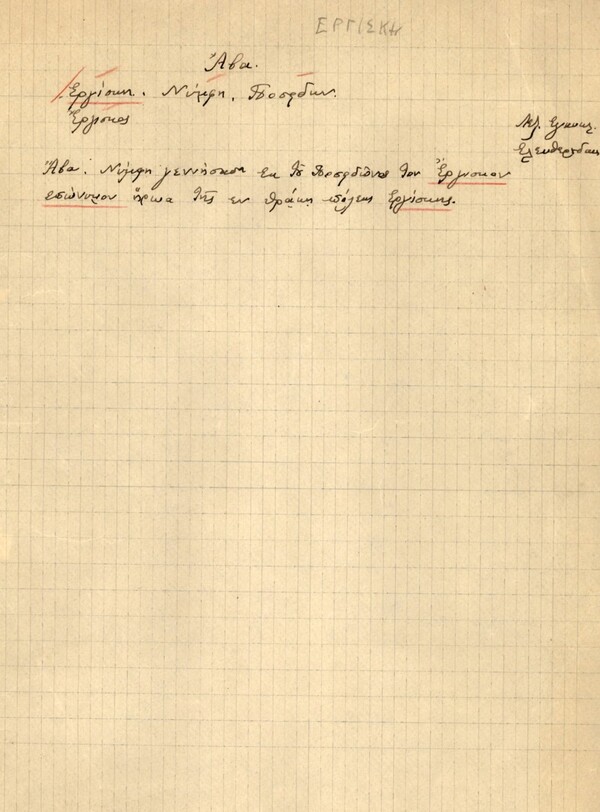 ΕΡΓΙΣΚΗ
Ἄβα.
Ἐργίσκη. Νύμφη. Ποσειδών.
Ἔργισκος
Ελευθερουδακ
Ἄβα. Νύμφη γεννήσασα εκ τοῦ Ποσειδῶνα τον Ἔργισκον
επώνυμον ἥρωα τῆς εν Θράκη πόλεως Εργίσκης.